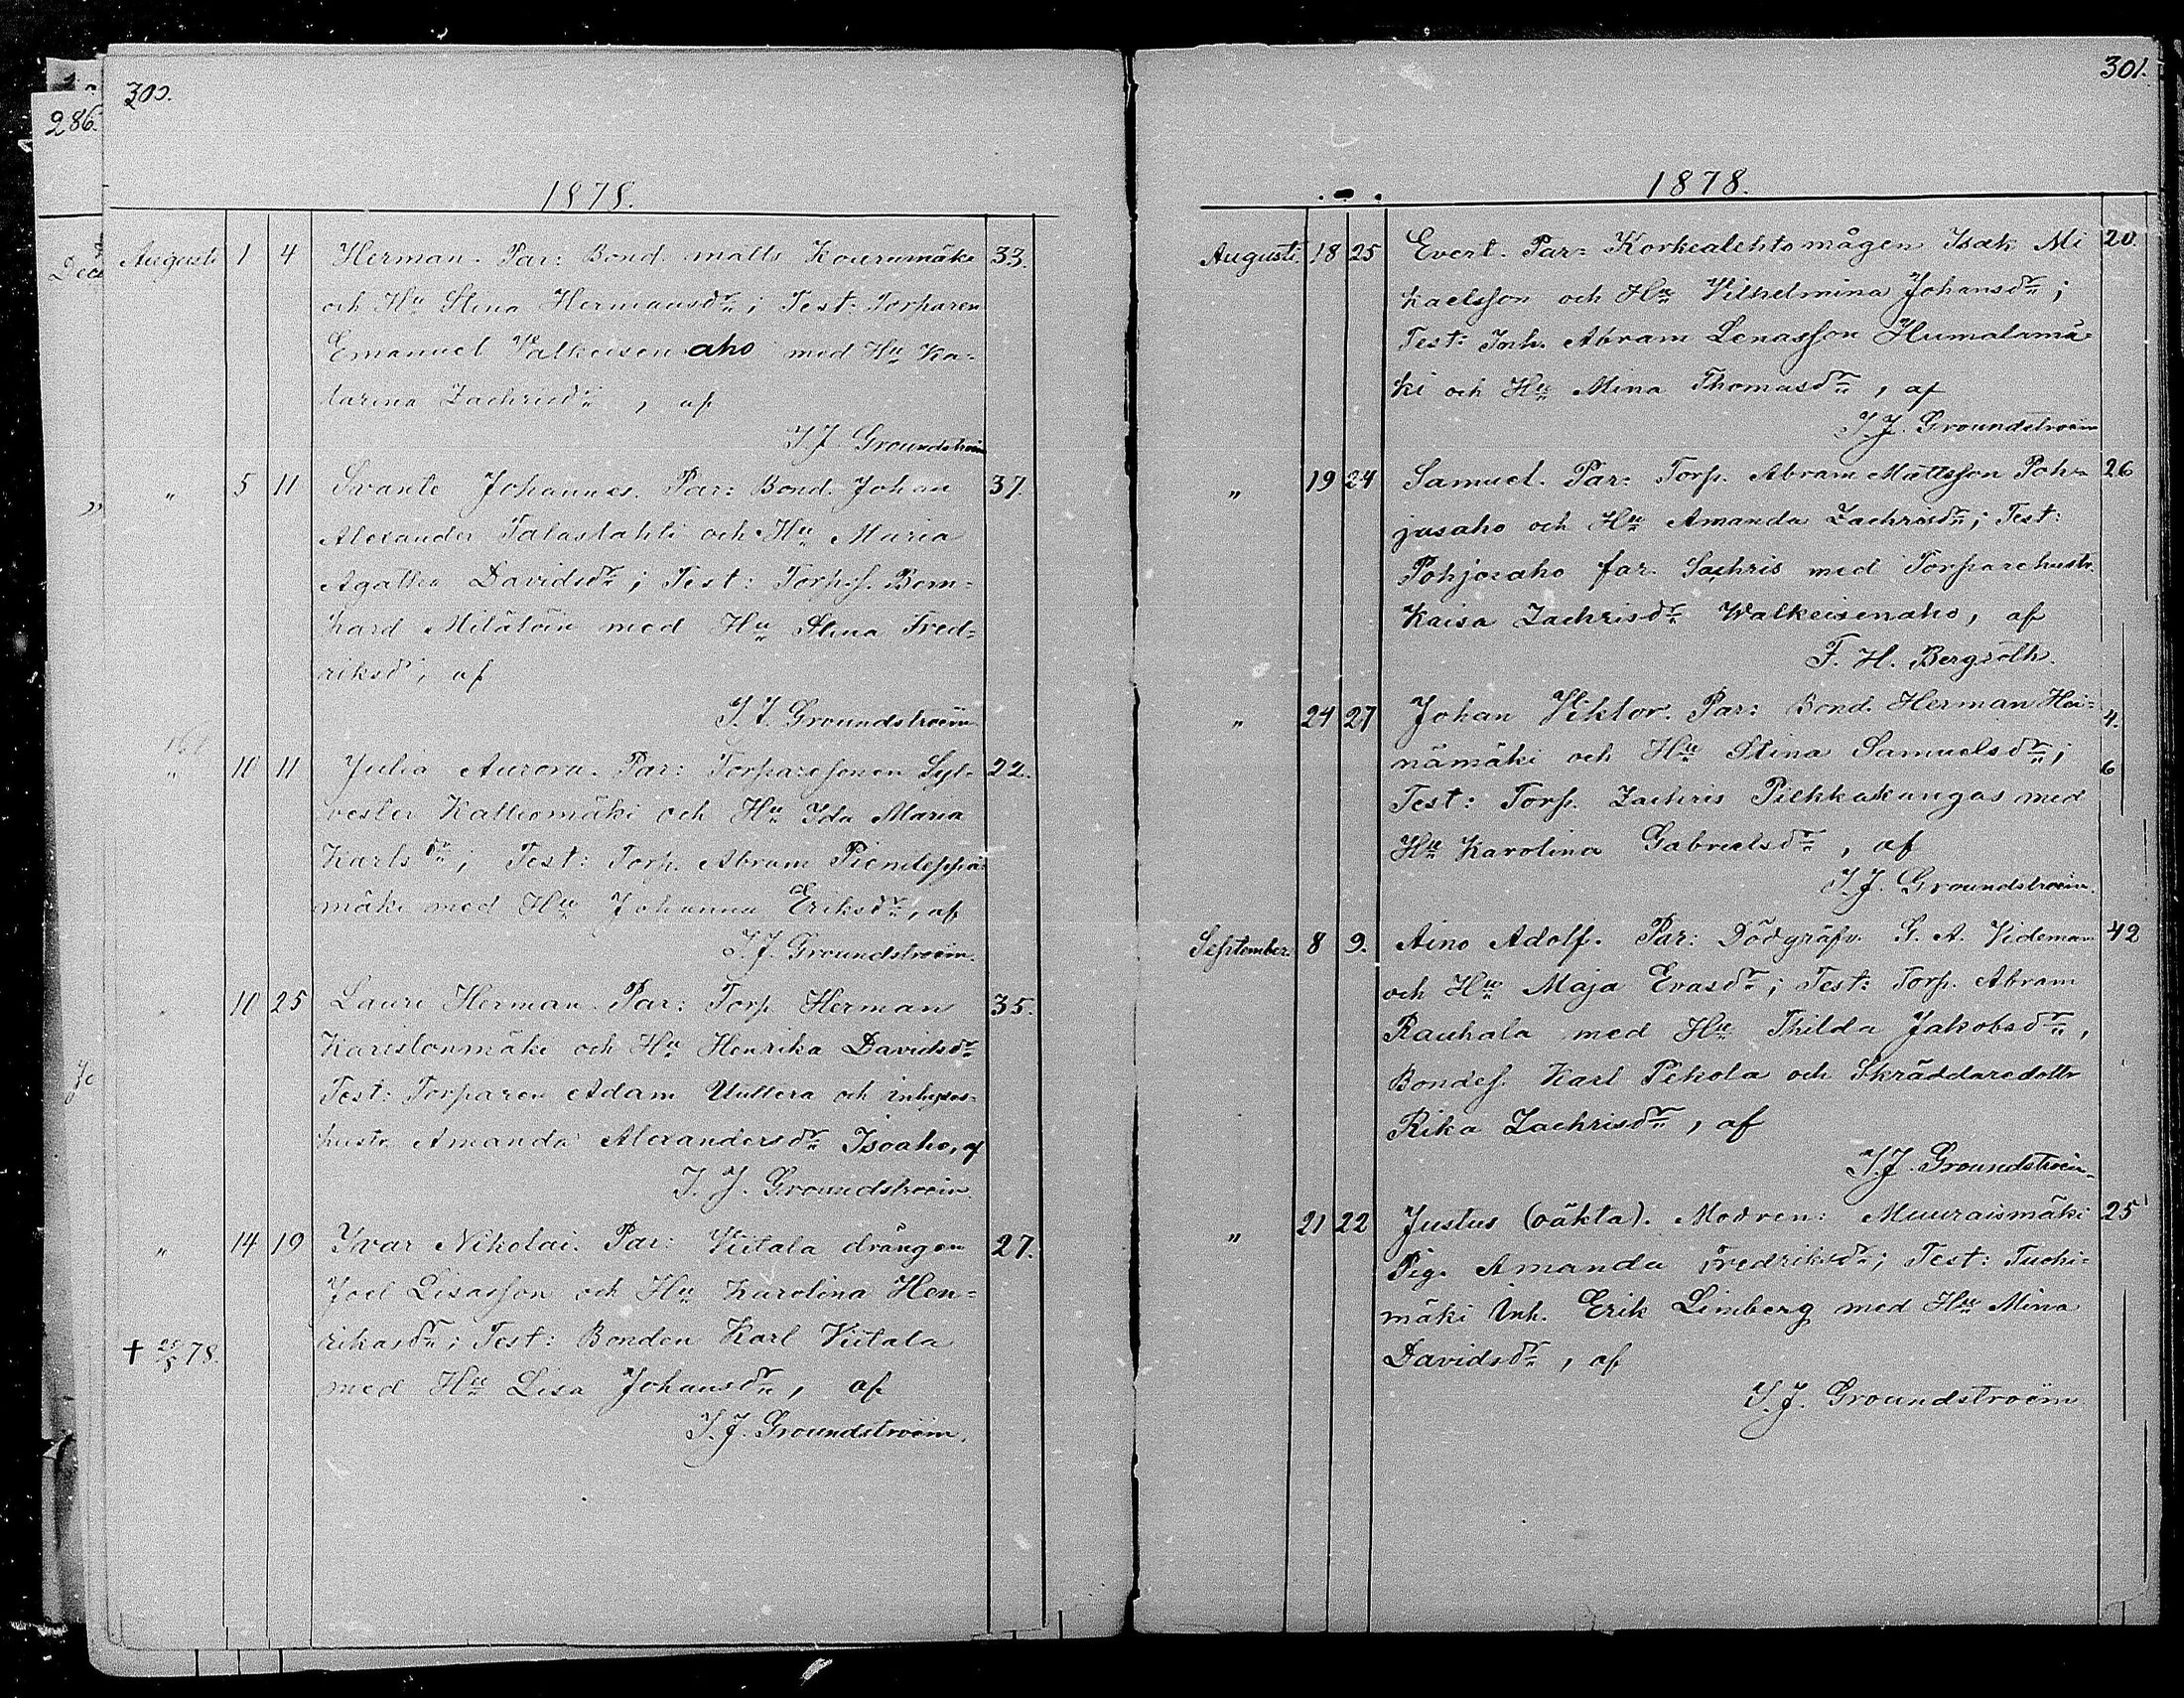 300.
286.
1878.
Dec
Augusti 1 4 Herman. Par: Bond. Matts Kourumäki 33.
och Hu Stina Hermansdr; Test: Torparen
Emanuel Valkeisenaho med Hu Ka-
tarina Zachrisdr, af
I. J. Groundstroëm
" 5 11 Svante Johannes. Par: Bond. Johan 37.
Alexander Talastahti och Hu Maria
Agatha Davidsdr; Test: Torp.s. Bern-
hard Mitätöin med Hu Stina Fred-
riksdr, af
I. J. Groundstroëm
" 10 11 Julia Aurora. Par: Torparesonen Syl- 22.
vester Kattiomäki och Hu Ida Maria
Karlsdr; Test: Torp. Abram Pienileppä-
mäki med Hu Johanna Eriksdr, af
I. J. Groundstroëm.
10 25 Lauri Herman. Par: Torp. Herman 35.
Karistonmäki och Hu Henrika Davidsdr
Test: Torparen Adam Uuttera och inhyses-
hustr Amanda Alexandersdr Isoaho, af
I. J. Groundstroëm.
" 14 19 Ivar Nikolai. Par: Viitala drängen 27.
Joel Lisasson och Hu Karolina Hen-
rikasdr; Test: Bonden Karl Viitala
† 25/8 78.
med Hu Lisa Johansdr, af
I. J. Groundstroëm.
301.
1878.
Augusti. 18 25 Evert. Par: Korkealehto mågen Isak Mi 20.
kaelsson och Hu Vilhelmina Johansdr;
Test: Inh. Abram Lenasson Humalamä-
ki och Hu Mina Thomasdr, af
I. J. Groundstroëm
" 19 24 Samuel. Par: Torp. Abram Mattsson Poh- 26
jasaho och Hu Amanda Zachrisdr; Test:
Pohjosaho far. Sachris med Torparehustr.
Kaisa Zachrisdr Walkeisenaho, af
F. H. Bergroth.
" 24 27 Johan Viktor. Par: Bond. Herman Hei- 4.
nämäki och Hu Stina Samuelsdr; 6
Test: Torp. Zachris Piehkakangas med
Hu Karolina Gabrielsdr, af
I. J. Groundstroëm.
September. 8 9. Aino Adolf. Par: Dödgräfv. G. A. Videman 42
och Hu Maja Evasdr; Test: Torp. Abram
Rauhala med Hu Thilda Jakobsdr,
Bondes. Karl Pekola och Skräddaredottr
Rika Zachrisdr, af
I. J. Groundstroëm
" 21 22 Justus (oäkta). Modren: Muuraismäki 25
Pig. Amanda Fredriksdr; Test: Tuohi-
mäki Inh. Erik Limberg med Hu Mina
Davidsdr, af
I. J. Groundstroëm